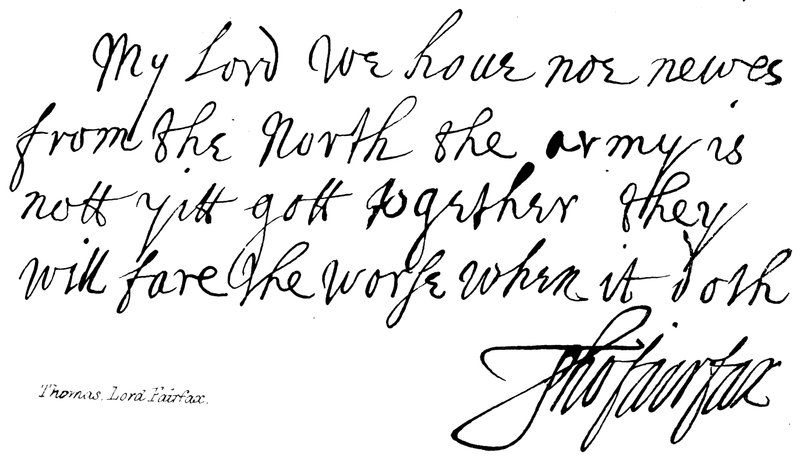 My Lord We haue noe newes
from the North the army is
nott yitt gott together they
will fare the worse when it doth
Tho fairfax
Thomas, Lord Fairfax.